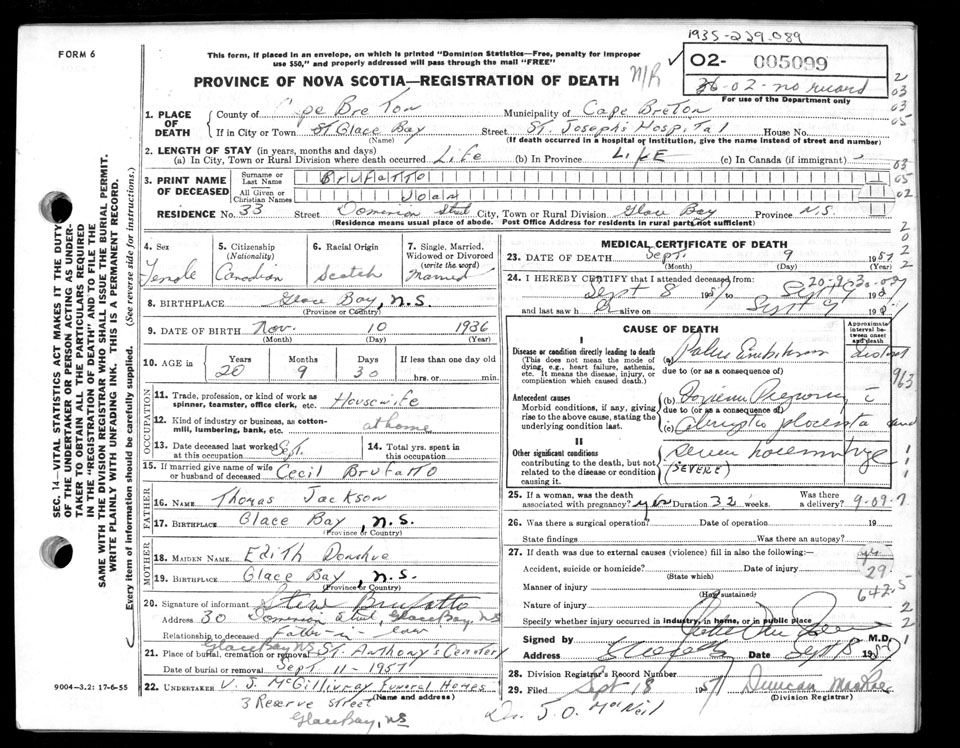 1935-229.089
FORM 6
This form, if placed in an envelope, on which is printed "Dominion Statistics—Free, penalty for improper
use $50," and properly addressed will pass through the mail "FREE"
N/R
02- 005099
36-02-no record
For use of the Department only
PROVINCE OF NOVA SCOTIA—REGISTRATION OF DEATH
1. PLACE OF DEATH
County of Cape Breton Municipality of Cape Breton
If in City or Town Glace Bay Street St. Joseph's Hospital House No.
(Name) (If death occurred in a hospital or institution, give the name instead of street and number)
2. LENGTH OF STAY (in years, months and days)
(a) In City, Town or Rural Division where death occurred Life (b) In Province LIFE (c) In Canada (if immigrant)
3. PRINT NAME OF DECEASED
Surname or Last Name Brufatto
All Given or Christian Names Joan
RESIDENCE No. 33 Street Dominion Street City, Town or Rural Division Glace Bay Province N.S.
(Residence means usual place of abode. Post Office Address for residents in rural parts not sufficient)
4. Sex Female
5. Citizenship (Nationality) Canadian
6. Racial Origin Scotch
7. Single, Married, Widowed or Divorced (write the word) Married
8. BIRTHPLACE Glace Bay, N.S.
(Province or Country)
9. DATE OF BIRTH Nov. 10 1936
(Month) (Day) (Year)
10. AGE IN Years 20 Months 9 Days 30 If less than one day old hrs. or min.
OCCUPATION
11. Trade, profession, or kind of work as spinner, teamster, office clerk, etc. Housewife
12. Kind of industry or business, as cotton-mill, lumbering, bank, etc. at home
13. Date deceased last worked at this occupation Sept.
14. Total yrs. spent in this occupation
15. If married give name of wife or husband of deceased Cecil Brufatto
FATHER
16. NAME Thomas Jackson
17. BIRTHPLACE Glace Bay, N.S.
(Province or Country)
MOTHER
18. MAIDEN NAME Edith Donahue
19. BIRTHPLACE Glace Bay, N.S.
(Province or Country)
20. Signature of informant Steve Brufatto
Address 30 Dominion Street, Glace Bay, NS
Relationship to deceased Father-in-law
21. Place of burial, cremation or removal Glace Bay NS St. Anthony's Cemetery
Date of burial or removal Sept 11-1957
22. UNDERTAKER V. J. McGillivray Funeral Homes
(Name and address)
3 Reserve Street
Glace Bay, NS
9004-3.2: 17-6-55
MEDICAL CERTIFICATE OF DEATH
23. DATE OF DEATH Sept. 9 1957
(Month) (Day) (Year)
24. I HEREBY CERTIFY that I attended deceased from
Sept 8 1957 to Sept 9 1957
and last saw h alive on Sept 9 195
CAUSE OF DEATH
Approximate interval between onset and death
I
Disease or condition directly leading to death
(This does not mean the mode of dying, e.g., heart failure, asthenia, etc. It means the disease, injury, or complication which caused death.)
(a)
due to (or as a consequence of)
Antecedent causes
Morbid conditions, if any, giving rise to the above cause, stating the underlying condition last.
(b)
due to (or as a consequence of)
(c) Abruptio placenta
II
Other significant conditions
contributing to the death, but not related to the disease or condition causing it.
Severe hoemorrhage
(SEVERE)
963
25. If a woman, was the death associated with pregnancy? yes Duration 32 weeks. Was there a delivery? 9-09.7
26. Was there a surgical operation? Date of operation 19
State findings Was there an autopsy?
27. If death was due to external causes (violence) fill in also the following:—
Accident, suicide or homicide? Date of injury
(State which)
29.
Manner of injury
(How sustained)
642.5
Nature of injury
Specify whether injury occurred in industry, in home, or in public place
Signed by M.D.
Address Date Sept 18 1957
28. Division Registrar's Record Number
29. Filed Sept 18 1957 Duncan MacRae
(Division Registrar)
Dr. J. O. MacNeil
SEC. 14—VITAL STATISTICS ACT MAKES IT THE DUTY
OF THE UNDERTAKER OR PERSON ACTING AS UNDER-
TAKER TO OBTAIN ALL THE PARTICULARS REQUIRED
IN THE "REGISTRATION OF DEATH" AND TO FILE THE
SAME WITH THE DIVISION REGISTRAR WHO SHALL ISSUE THE BURIAL PERMIT.
WRITE PLAINLY WITH UNFADING INK. THIS IS A PERMANENT RECORD.
Every item of information should be carefully supplied. (See reverse side for instructions.)